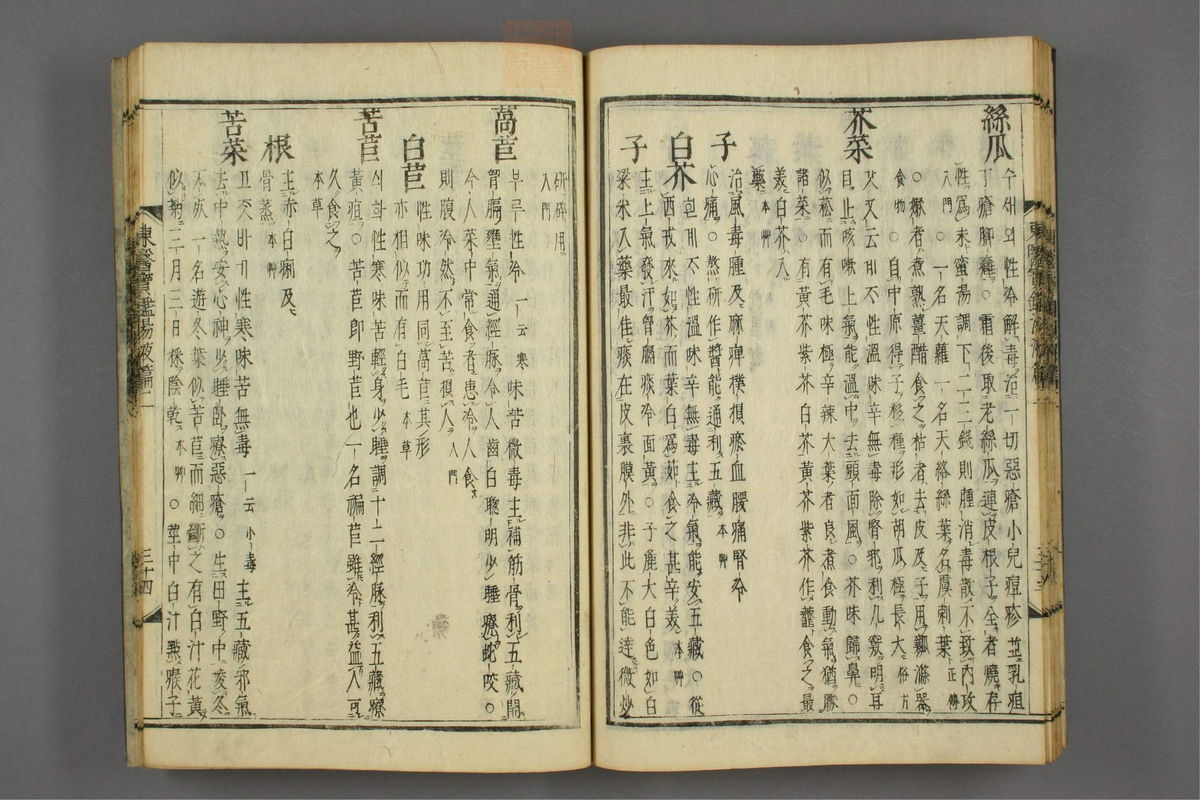 絲瓜 수세외 性冷解毒治一切惡瘡小兒痘疹並乳疽
丁瘡脚癰○霜後取老絲瓜連皮根子全者燒存
性爲末蜜湯調下二三錢則腫消毒散不致內攻
入門○一名天蘿一名天絡絲葉名虞刺葉正傳
○嫩者煮熟薑醋食之枯者去皮及子用瓤滌器
食物○自中原得子移種形如胡瓜極長大俗方
芥菜 갓又云 계ᄌᆞ 性溫味辛無毒除腎邪利九竅明耳
目止咳嗽上氣能溫中去頭面風○芥味歸鼻○
似菘而有毛味極辛辣大葉者良煮食動氣猶勝
諸菜○有黃芥紫芥白芥黃芥紫芥作虀食之最
美白芥入
藥本艸
子 治風毒腫及麻痺撲損瘀血腰痛腎冷
心痛○熬硏作醬能通利五藏本艸
白芥 흰계ᄌᆞ 性溫味辛無毒主冷氣能安五藏○從
西戎來如芥而葉白爲茹食之甚辛美本艸
子 主上氣發汗胷膈痰冷面黃○子麤大白色如白
梁米入藥最佳痰在皮裏膜外非此不能達微炒
硏碎用
入門
萵苣 부루 性冷一云寒味苦微毒主補筋骨利五藏開
胷膈壅氣通經脉令人齒白聰明少睡療蛇咬○
今人菜中常食者患冷人食
則腹冷然不至苦損人入門
白苣 性味功用同萵苣其形
亦相似而有白毛本草
苦苣 싀화 性寒味苦輕身少睡調十二經脉利五藏療
黃疸○苦苣卽野苣也一名褊苣雖冷甚益人可
久食之
本草
根 主赤白痢及
骨蒸本艸
苦菜 고ᄌᆞᆺ바기 性寒味苦無毒一云小毒主五藏邪氣
去中熱安心神少睡臥療惡瘡○生田野中凌冬
不死一名遊冬葉似苦苣而細斷之有白汁花黃
似菊三月三日採陰乾本艸○莖中白汁點瘊子
東醫寶鑑湯液篇二
三十四